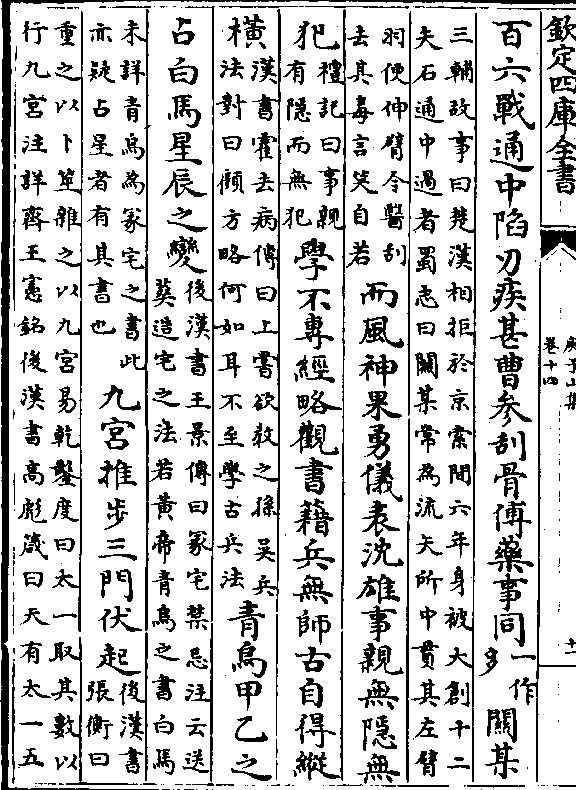 欽定四庫全書
庾子山集
卷十四
十一
百六戰通中陷刃疾甚曹參刮骨傅藥事同一作多關某
三輔故事曰楚漢相拒於京索間六年身被大創十二
矢石通中過者蜀志曰關某常為流矢所中貫其左臂
羽便伸臂令醫刮
去其毒言笑自若
而風神果勇儀表沈雄事親無隱無
犯
禮記曰事親
有隱而無犯
學不專經略觀書籍兵無師古自得縱
橫
漢書霍去病傳曰上嘗欲敎之孫吳兵
法對曰顧方略何如耳不至學古兵法
青烏甲乙之
占白馬星辰之變
後漢書王景傳曰冢宅禁忌注云送
葬造宅之法若黃帝青烏之書白馬
未詳青烏為冢宅之書此
亦疑占星者有其書也
九宮推步三門伏起
後漢書
張衡曰
重之以卜筮雜之以九宮易乾鑿度曰太一取其數以
行九宮注詳齊王憲銘後漢書高彪箴曰天有太一五